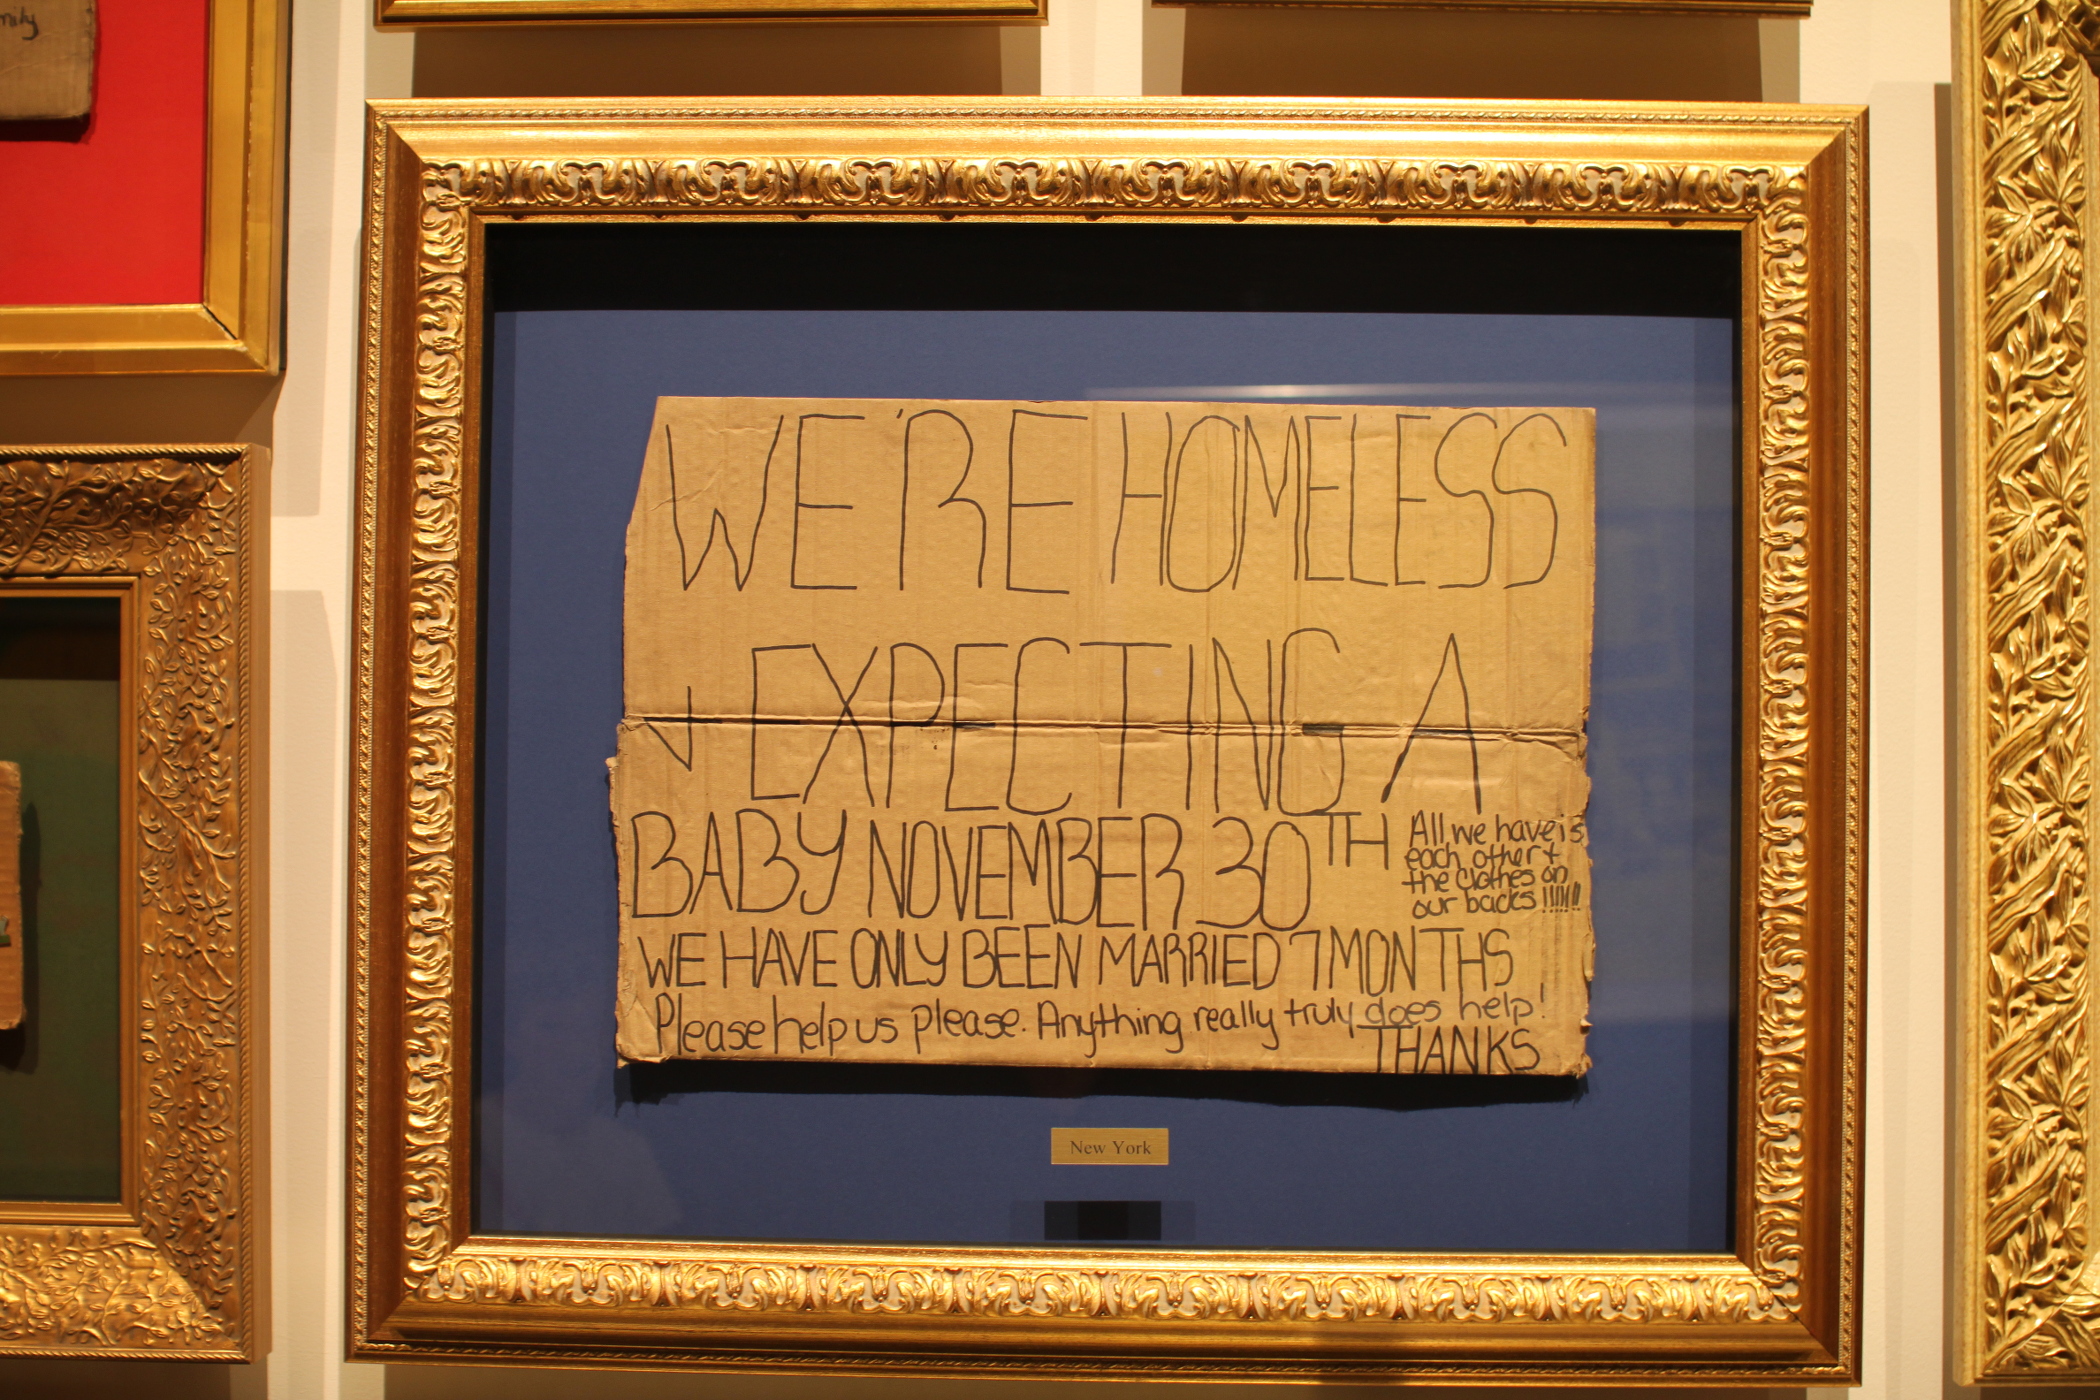 WE'RE HOMELESS
+ EXPECTING A
BABY NOVEMBER 30TH
All we have is
each other +
the clothes on
our backs !!!!!!
WE HAVE ONLY BEEN MARRIED 7 MONTHS
Please help us please. Anything really truly does help!
THANKS
New York